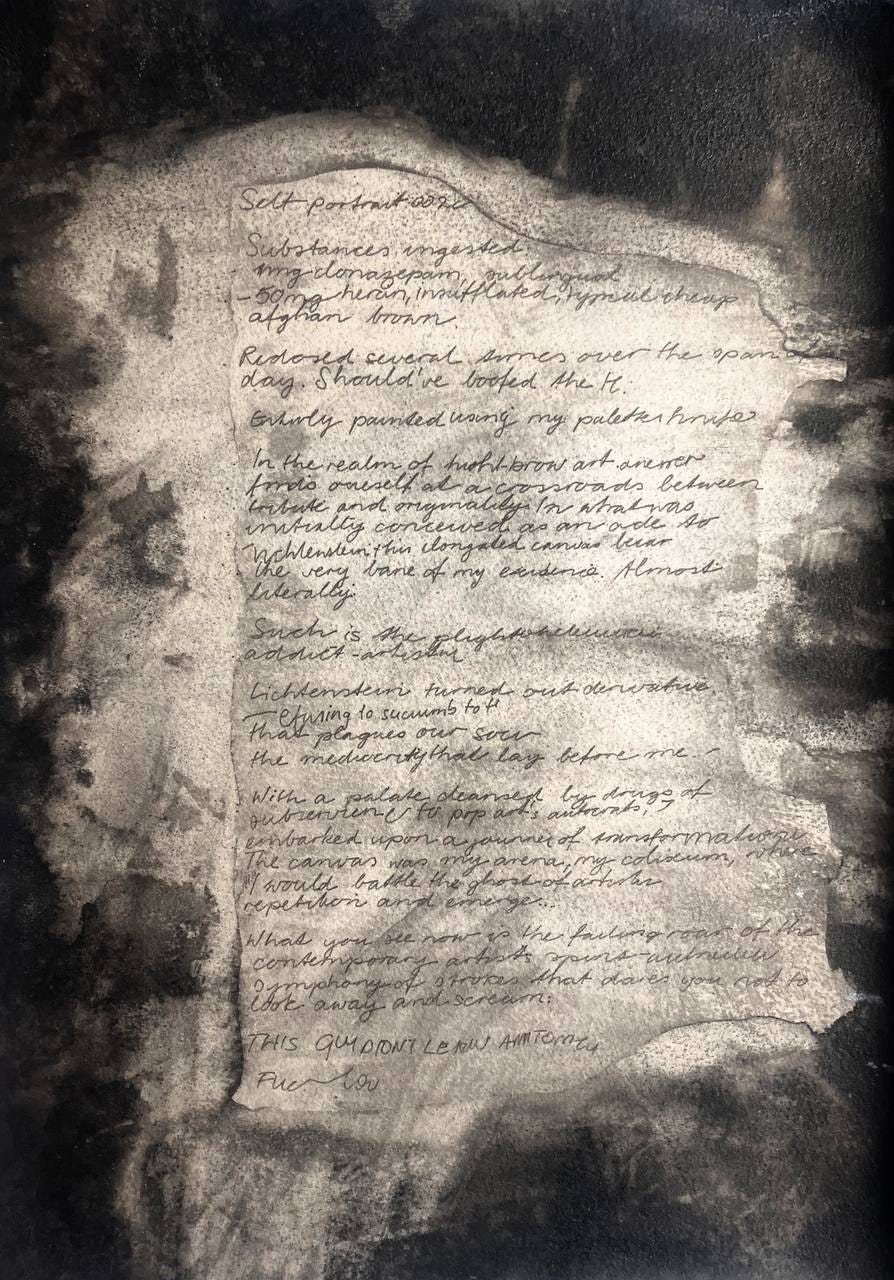 Self portrait
Substances ingested
- 1mg clonazepam, sublingual
- 50mg heroin, insufflated, typical cheap
afghan brown.
Redosed several times over the span of
day. Should've boofed the H.
Entirely painted using my palette knife
In the realm of hight-brow art
finds oneself at a crossroads between
tribute and originality. In what was
initially conceived as an ode to
Lichtenstein this elongated canvas bear
the very bane of my existence. Almost
literally.
Such is the plight
addict-artist
Lichtenstein turned out derivative.
refusing to succumb to
that plagues our
the mediocrity that lay before me.
With a palate cleansed by drugs of
to pop art's autocrats, I
embarked upon a journey of transformation
The canvas was my arena, my coliseum, where
I would battle the ghost of artistic
repetition and emerge...
What you see now is the failing roar of the
contemporary artist's
symphony of strokes that dares you not to
look away and scream:
THIS GUY DIDN'T LEARN ANATOMY